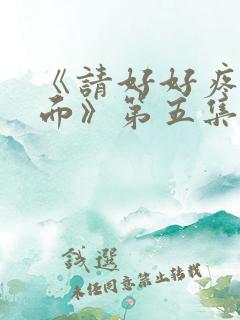 《請好好疼
而》第五集
錢選
未经同意禁止转载